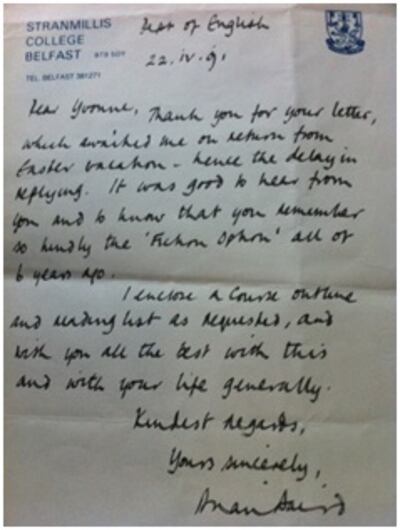 STRANMILLIS
COLLEGE
BELFAST BT9 5DY
TEL. BELFAST 381271
Dept of English
22.iv.91
Dear Yvonne, Thank you for your letter,
which awaited me on return from
Easter vacation - hence the delay in
replying. It was good to hear from
you and to know that you remember
so kindly the 'Fiction Option' all of
6 years ago.
I enclose a Course outline
and reading list as requested, and
wish you all the best with this
and with your life generally.
Kindest regards,
Yours sincerely,
Baird